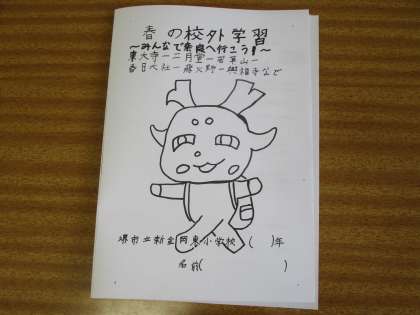 春の校外学習
～みんなで奈良へ行こう！～
東大寺ー二月堂ー若草山ー
春日大社ー飛火野ー興福寺など
堺市立新金岡東小学校 (　)年
名前(　　　)